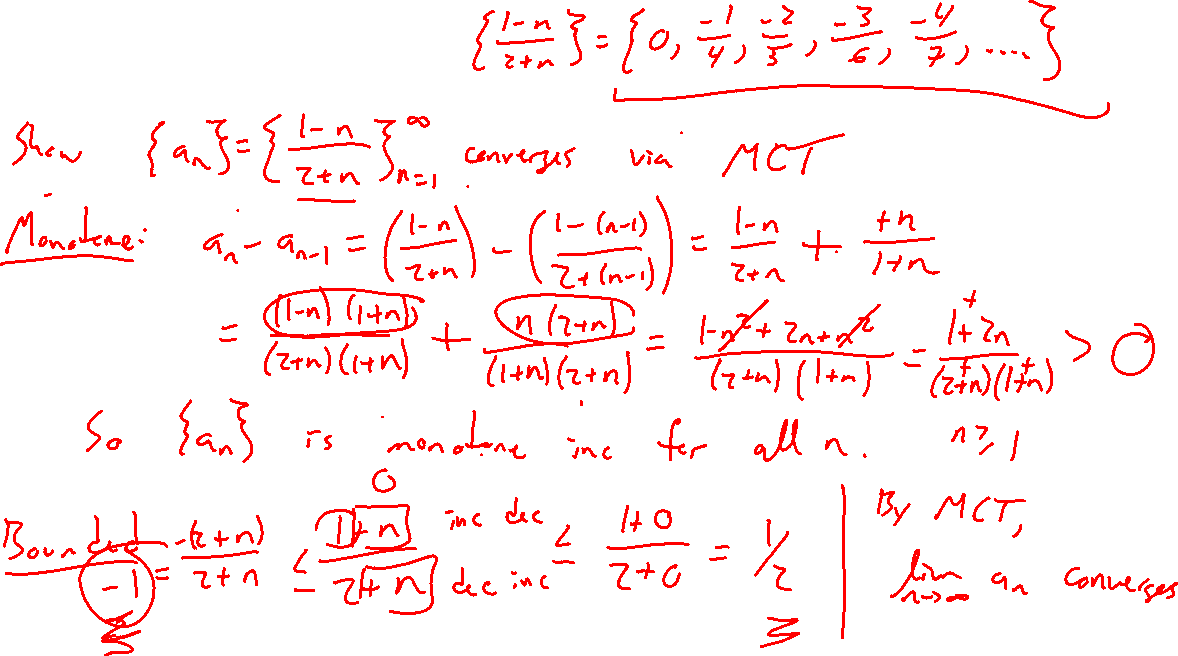 {1-n/2+n} = {0, -1/4, -2/5, -3/6, -4/7, ....}
Show {aₙ} = {1-n/2+n}ₙ₌₁^∞ converges via MCT
Monotone: aₙ - aₙ₋₁ = (1-n/2+n) - (1-(n-1)/2+(n-1)) = 1-n/2+n + +n/1+n
= (1-n)(1+n)/(2+n)(1+n) + n(2+n)/(1+n)(2+n) = 1-n²+2n+n²/(2+n)(1+n) = 1+2n/(2+n)(1+n) > 0
So {aₙ} is monotone inc for all n. n ≥ 1
0
Bounded -1 = -(2+n)/2+n ≤ 1+n/2+n inc dec dec inc ≤ 1+0/2+0 = 1/2
By MCT,
lim n→∞ aₙ converges